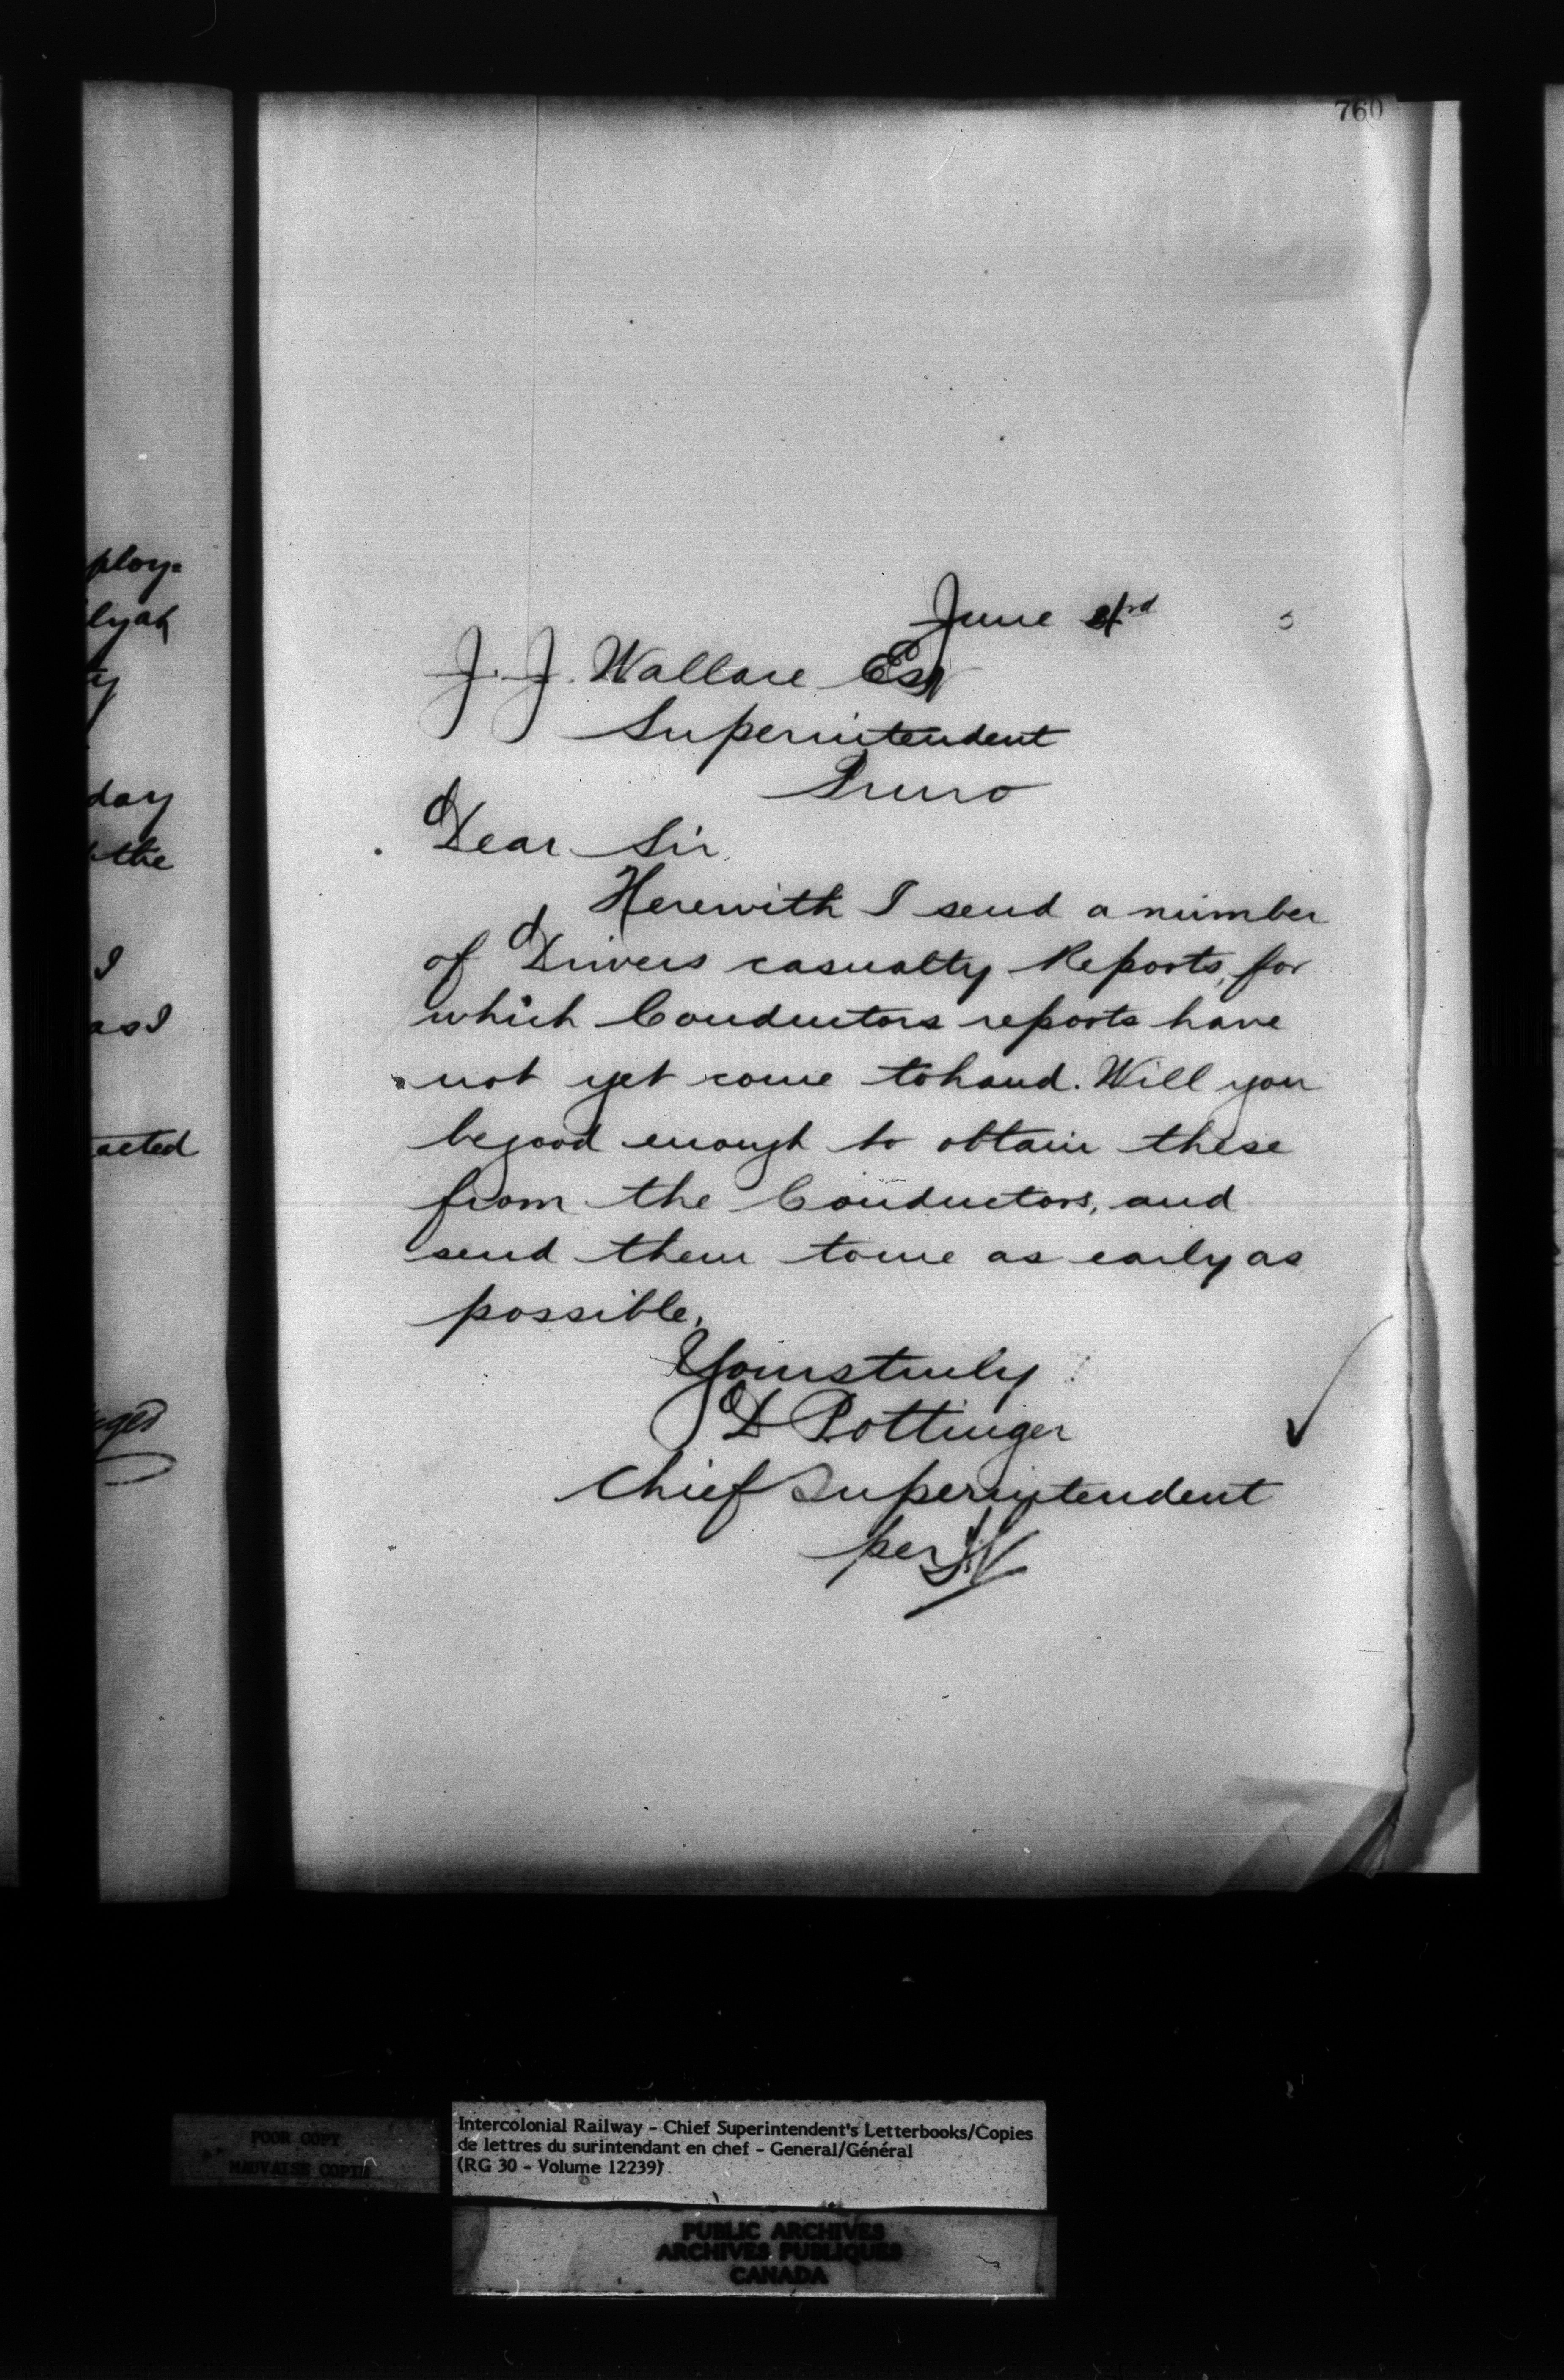 760
ploy-
day
the
I
as I
acted
June
J. J. Wallace Esq
Superintendent
Truro
Dear Sir,
Herewith I send a number
of Drivers casualty Reports, for
which Conductors reports have
not yet come to hand. Will you
be good enough to obtain these
from the Conductors, and
send them to me as early as
possible.
Yours truly
D Pottinger
Chief Superintendent
per
POOR COPY
MAUVAISE COPIE
Intercolonial Railway - Chief Superintendent's Letterbooks/Copies
de lettres du surintendant en chef - General/Général
(RG 30 - Volume 12239)
PUBLIC ARCHIVES
ARCHIVES PUBLIQUES
CANADA